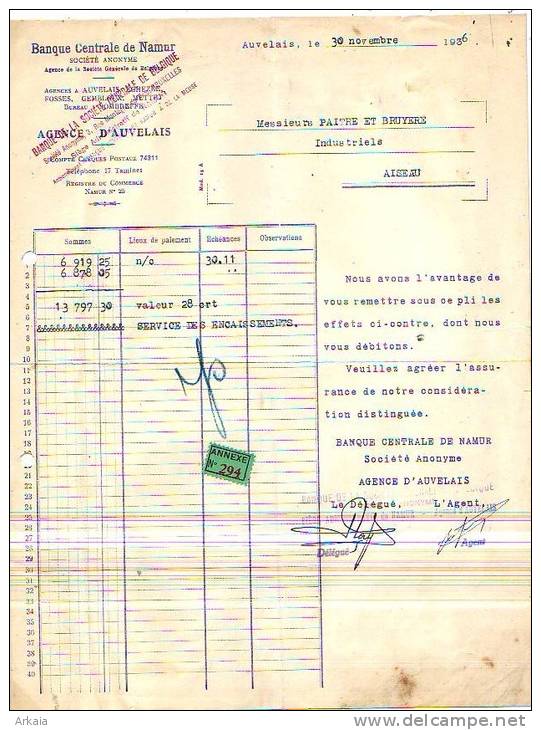 Banque Centrale de Namur
SOCIÉTÉ ANONYME
Agence de la Société Générale de
AGENCES A AUVELAIS,
FOSSES, GEMBLOUX, METTET
BUREAU
AGENCE D'AUVELAIS
COMPTE CHÈQUES POSTAUX 74311
Téléphone 17 Tamines
REGISTRE DU COMMERCE
NAMUR N° 25
BANQUE DE LA SOCIÉTÉ GÉNÉRALE DE BELGIQUE
Société Anonyme, 3, Rue
BRUXELLES
DE LA MEUSE
Auvelais, le 30 novembre 1936
Messieurs PAITRE ET BRUYERE
Industriels
AISEAU
Mod. 15 A
Sommes Lieux de paiement Echéances Observations
1 6 919 25 n/c 30.11
2 6.878 05 ..
3
4
5 13 797 30 valeur 28 crt
6
7 SERVICE DES ENCAISSEMENTS.
8
9
10
11
12
13
14
15
16
17
18
19
20
21
22
23
24
25
26
27
28
29
30
31
32
33
34
35
36
37
38
39
40
ANNEXE
N° 294
Nous avons l'avantage de
vous remettre sous ce pli les
effets ci-contre, dont nous
vous débitons.
Veuillez agréer l'assu-
rance de notre considéra-
tion distinguée.
BANQUE CENTRALE DE NAMUR
Société Anonyme
AGENCE D'AUVELAIS
Le Délégué, L'Agent,
Délégué Agent
Arkaia
www.delcampe.net